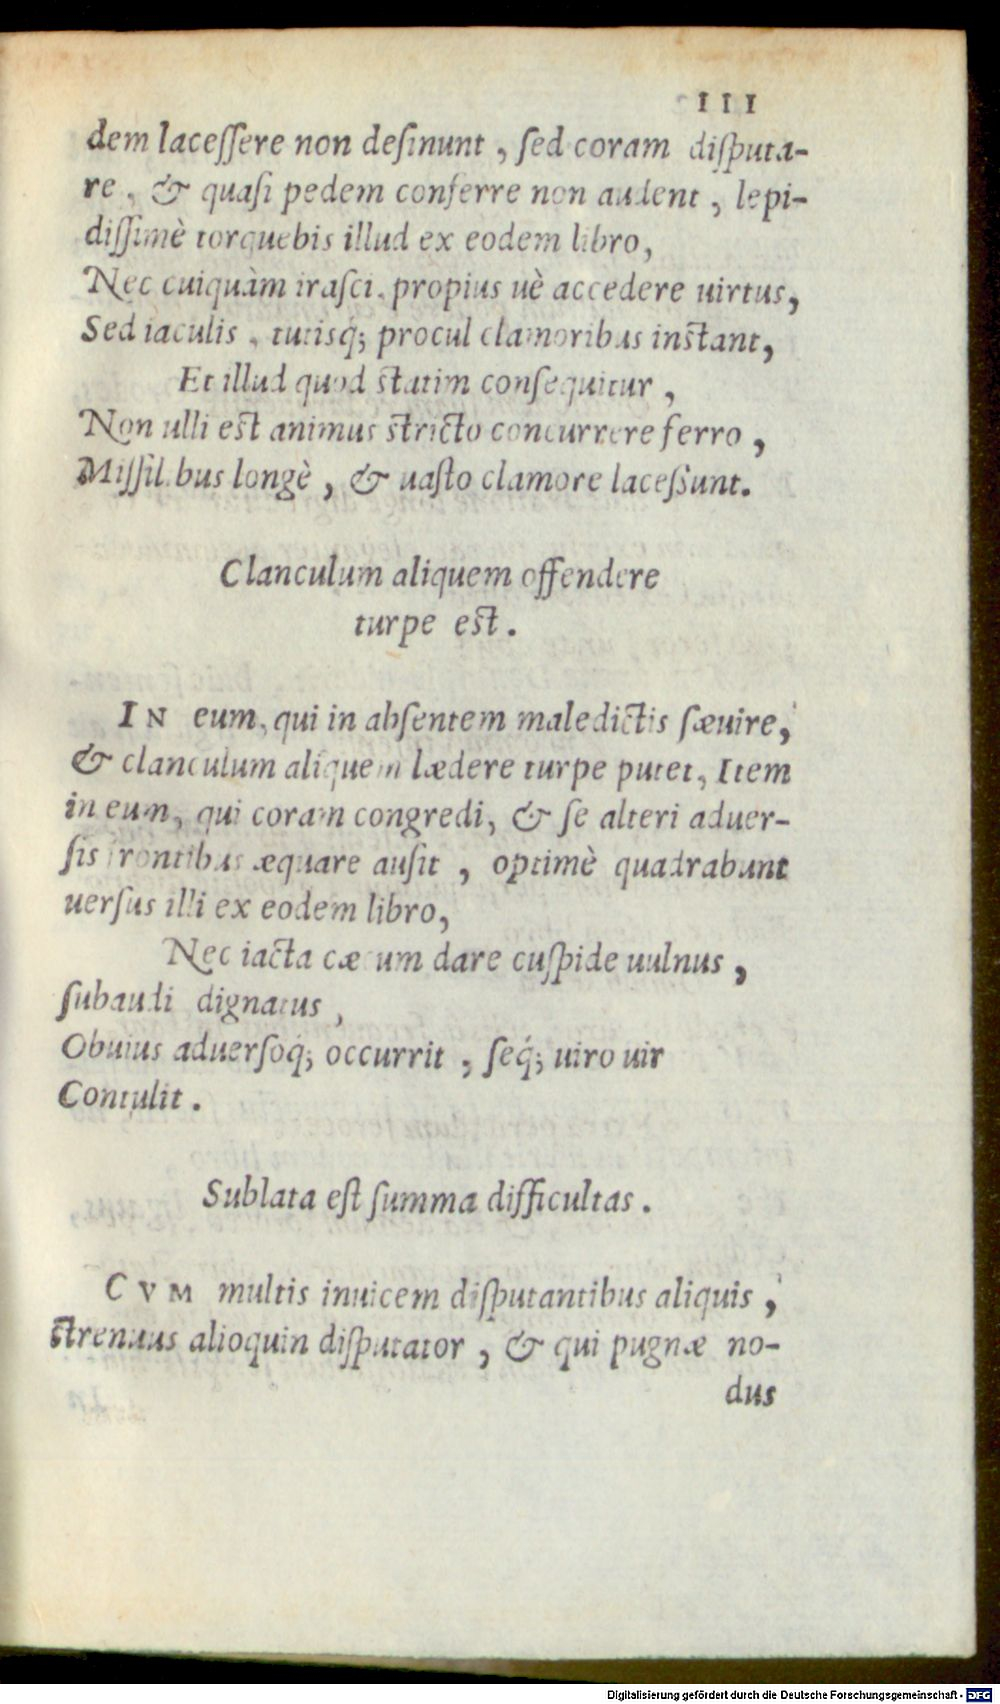 111
dem laceſſere non deſinunt, ſed coram diſputa-
re, & quaſi pedem conferre non audent, lepi-
diſſimè torquebis illud ex eodem libro,
Nec cuiquàm iraſci, propius uè accedere uirtus,
Sed iaculis, tutisq́; procul clamoribus inſtant,
Et illud quod ſtatim conſequitur,
Non ulli eſt animus ſtricto concurrere ferro,
Miſſilibus longè, & uaſto clamore laceſſunt.
Clanculum aliquem offendere
turpe eſt.
IN eum, qui in abſentem maledictis ſæuire,
& clanculum aliquem lædere turpe putet, Item
in eum, qui coram congredi, & ſe alteri aduer-
ſis frontibus æquare auſit, optimè quadrabunt
uerſus illi ex eodem libro,
Nec iacta cæcum dare cuſpide uulnus,
ſubaudi dignatus,
Obuius aduerſoq́; occurrit, ſeq́; uiro uir
Contulit.
Sublata eſt ſumma difficultas.
CVM multis inuicem diſputantibus aliquis,
ſtrenuus alioquin diſputator, & qui pugnæ no-
dus
Digitalisierung gefördert durch die Deutsche Forschungsgemeinschaft - DFG